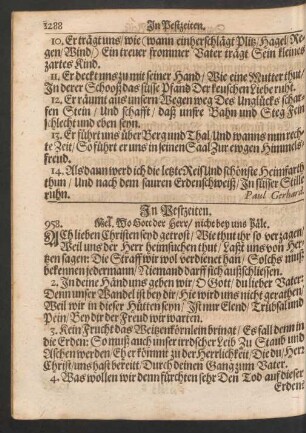 1288 In Pestzeiten.
10. Er trägt uns/ wie/ wann einherschlägt Plitz/ Hagel/ Re-
gen/ Wind/) Ein treuer frommer Vater trägt Sein kleines
zartes Kind.
11. Er deckt uns zu mit seiner Hand/ Wie eine Mutter thut/
In derer Schooß das süsse Pfand Der keuschen Liebe ruht.
12. Er räumt aus unsern Wegen weg Des Unglücks schar-
fen Stein/ Und schafft/ daß unsre Bahn und Steg Fein
schlecht und eben seyn.
13. Er führt uns über Berg und Thal/ Und wanns nun rech-
te Zeit/ So führt er uns in seinen Saal Zur ewgen Himmels-
freud.
14. Alsdann werd ich die letzte Reis Und schönste Heimfarth
thun/ Und nach dem sauren Erdenschweiß/ In süsser Stille
ruhn. Paul Gerhard.
In Pestzeiten.
958. Mel. Wo Gott der Herr/ nicht bey uns hält.
ACh lieben Christen seyd getrost/ Wie thut ihr so verzagen/
Weil uns der Herr heimsuchen thut/ Laßt uns von Her-
tzen sagen: Die Straff wir wol verdienet han/ Solchs muß
bekennen jedermann/ Niemand darff sich ausschliessen.
2. In deine Händ uns geben wir/ O Gott/ du lieber Vater:
Denn unser Wandel ist bey dir/ Hie wird uns nicht gerathen/
Weil wir in dieser Hütten seyn/ Ist nur Elend/ Trübsal und
Pein/ Bey dir der Freud wir warten.
3. Kein Frucht das Weitzenkörnlein bringt/ Es fall denn in
die Erden: So muß auch unser irrdscher Leib Zu Staub und
Aschen werden/ Eh er kömmt zu der Herrlichkeit/ Die du/ Herr
Christ/ uns hast bereitt/ Durch deinen Gang zum Vater.
4. Was wollen wir denn fürchten sehr Den Tod auf dieser
Erden!